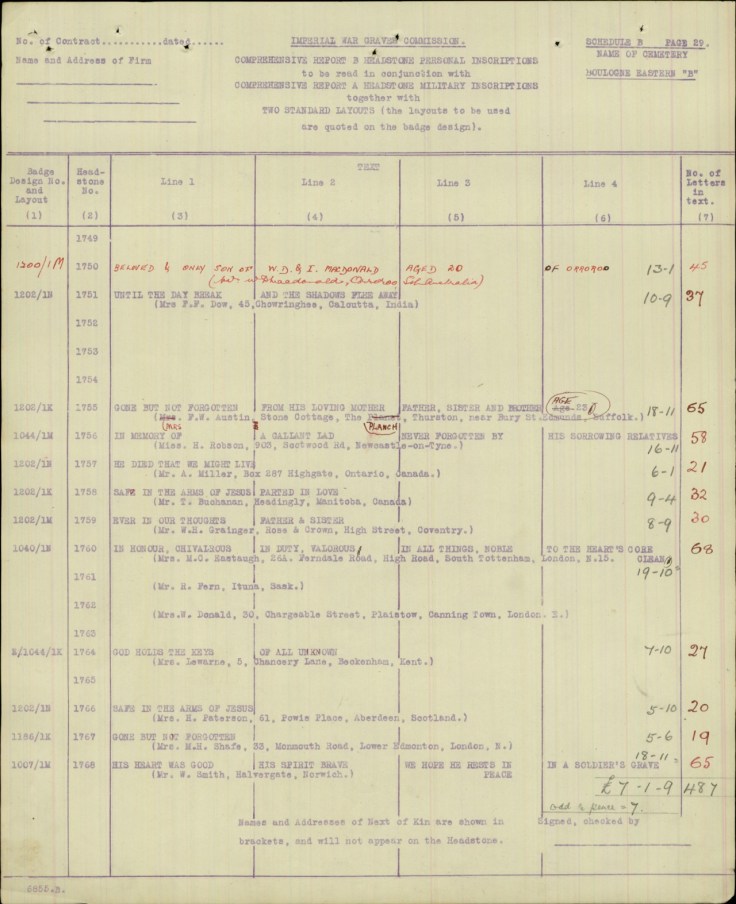 No. of Contract...........dated...... IMPERIAL WAR GRAVES COMMISSION. SCHEDULE B PAGE 29.
Name and Address of Firm COMPREHENSIVE REPORT B HEADSTONE PERSONAL INSCRIPTIONS NAME OF CEMETERY
to be read in conjunction with BOULOGNE EASTERN "B"
COMPREHENSIVE REPORT A HEADSTONE MILITARY INSCRIPTIONS
together with
TWO STANDARD LAYOUTS (the layouts to be used
are quoted on the badge design).
TEXT
Badge Design No. and Layout Head-stone No. Line 1 Line 2 Line 3 Line 4 No. of Letters in text.
(1) (2) (3) (4) (5) (6) (7)
1749
1200/1M 1750 BELOVED & ONLY SON OF W.D. & I. MACDONALD AGED 20 OF ORROROO 13-1 45
Orroroo Sth Australia)
1202/1N 1751 UNTIL THE DAY BREAK AND THE SHADOWS FLEE AWAY 10-9 37
(Mrs F.F. Dow, 45, Chowringhee, Calcutta, India)
1752
1753
1754
1202/1K 1755 GONE BUT NOT FORGOTTEN FROM HIS LOVING MOTHER FATHER, SISTER AND BROTHER AGE 23 18-11 65
(Mrs. F.W. Austin, Stone Cottage, The Planch, Thurston, near Bury St. Edmunds, Suffolk.)
MRS PLANCH
1044/1M 1756 IN MEMORY OF A GALLANT LAD NEVER FORGOTTEN BY HIS SORROWING RELATIVES 58
(Miss. H. Robson, 903, Scotwood Rd, Newcastle-on-Tyne.) 16-11
1202/1N 1757 HE DIED THAT WE MIGHT LIVE 6-1 21
(Mr. A. Miller, Box 287 Highgate, Ontario, Canada.)
1202/1K 1758 SAFE IN THE ARMS OF JESUS PARTED IN LOVE 9-4 32
(Mr. T. Buchanan, Headingly, Manitoba, Canada)
1202/1M 1759 EVER IN OUR THOUGHTS FATHER & SISTER 8-9 30
(Mr. W.H. Grainger, Rose & Crown, High Street, Coventry.)
1040/1N 1760 IN HONOUR, CHIVALROUS IN DUTY, VALOROUS, IN ALL THINGS, NOBLE TO THE HEART'S CORE 68
(Mrs. M.C. Eastaugh, 26A. Ferndale Road, High Road, South Tottenham, London, N.15. CLEAN
1761 19-10
(Mr. R. Fern, Ituna, Sask.)
1762
(Mrs. W. Donald, 30, Chargeable Street, Plaistow, Canning Town, London. E.)
1763
2/1044/1K 1764 GOD HOLDS THE KEYS OF ALL UNKNOWN 7-10 27
(Mrs. Lewarne, 5, Chancery Lane, Beckenham, Kent.)
1765
1202/1N 1766 SAFE IN THE ARMS OF JESUS 5-10 20
(Mrs. H. Paterson, 61, Powis Place, Aberdeen, Scotland.)
1186/1K 1767 GONE BUT NOT FORGOTTEN 5-6 19
(Mrs. M.H. Shafe, 33, Monmouth Road, Lower Edmonton, London, N.)
1007/1M 1768 HIS HEART WAS GOOD HIS SPIRIT BRAVE WE HOPE HE RESTS IN PEACE IN A SOLDIER'S GRAVE 18-11 65
(Mr. W. Smith, Halvergate, Norwich.)
£7-1-9 487
odd ½ pence = 7.
Names and Addresses of Next of Kin are shown in Signed, checked by
brackets, and will not appear on the Headstone.
6855.B.